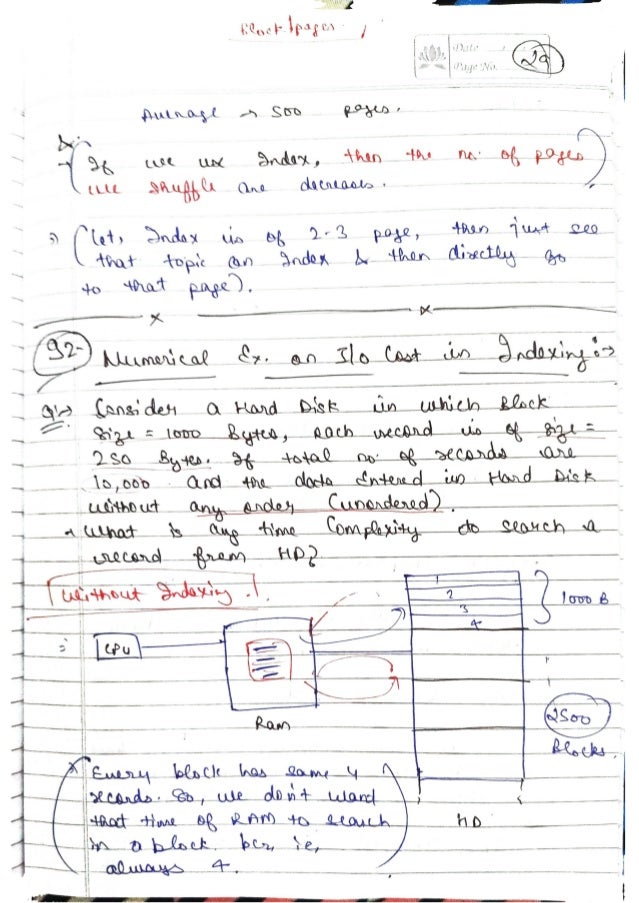 Block/pages
Date
Page No. 29
Average → 500 pages.
→ If we use Index, then the no. of pages
we shuffle are decreases.
⇒ (let, Index is of 2-3 page, then just see
that topic on Index & then directly go
to that page).
92- Numerical Ex. on I/o Cost in Indexing :→
Q:→ Consider a Hard Disk in which Block
Size = 1000 Bytes, each record is of size =
250 Bytes. If total no. of records are
10,000 and the data Entered in Hard Disk
without any order (unordered).
What is avg time Complexity to search a
record from HD?
Without Indexing.
1
2
3
4
1000 B
CPU
Ram
2500
Blocks.
HD
Every block has same 4
records. So, we don't want
that time of RAM to search
in a block. bcz, ie,
always 4.